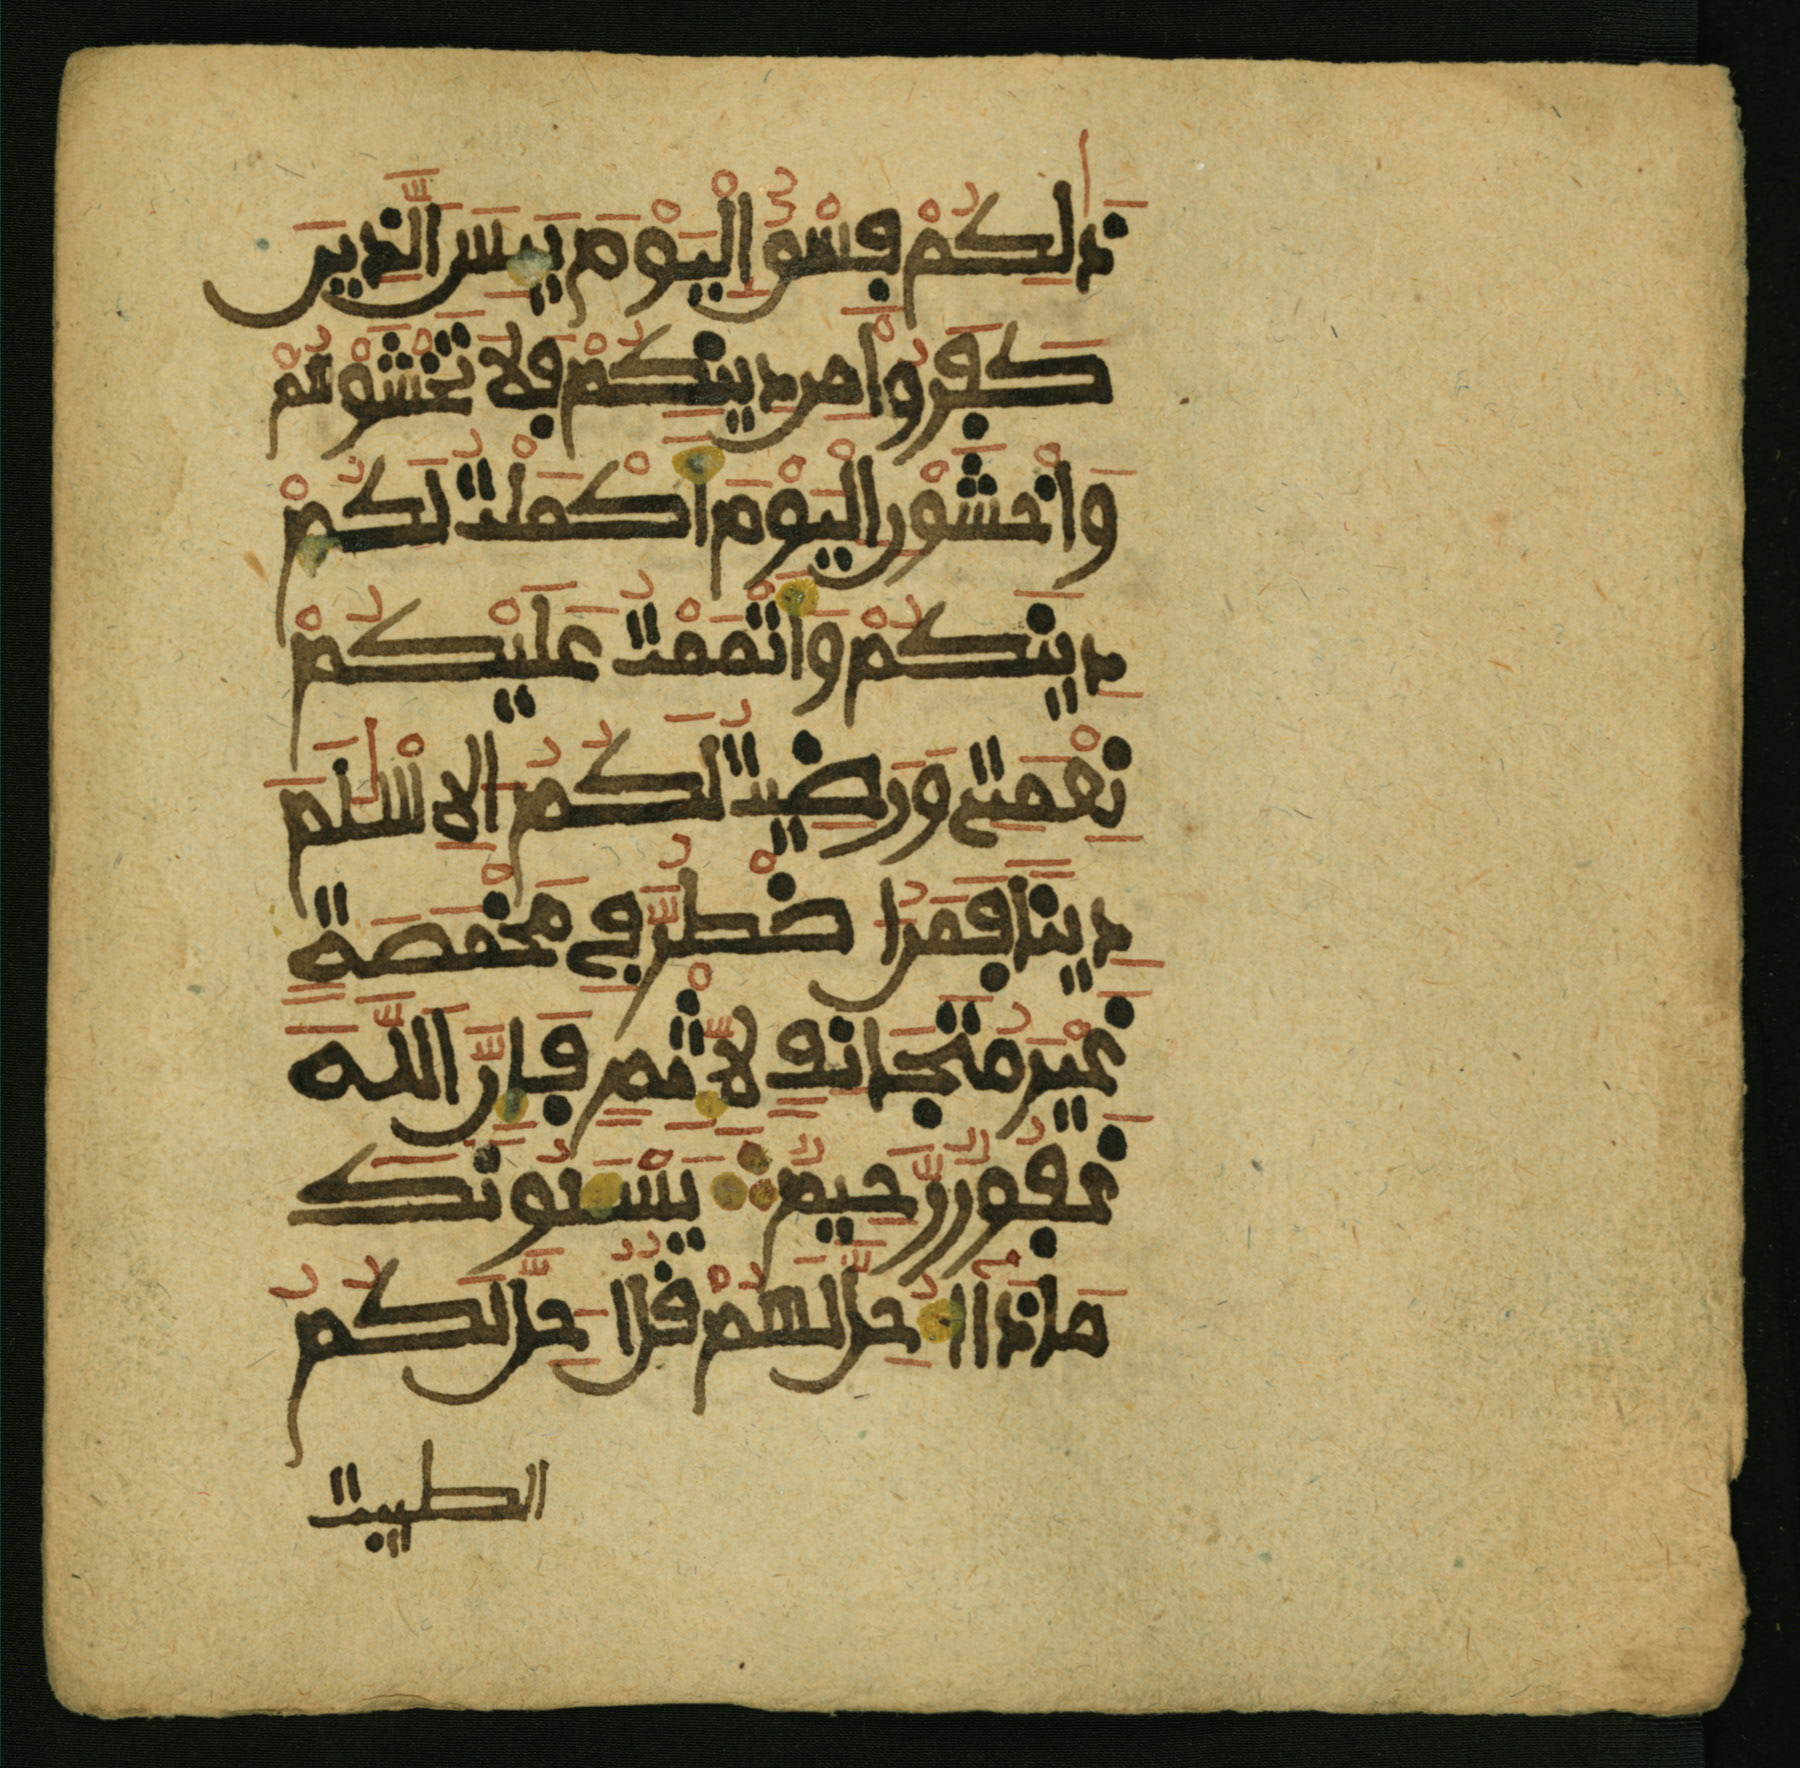 ذَٰلِكُمْ فِسْقٌ الْيَوْمَ يَيِسَ الَّذِينَ
كَفَرُواْ مِن دِينِكُمْ فَلَا تَخْشَوْهُمْ
وَاخْشَوْنِ الْيَوْمَ أَكْمَلْتُ لَكُمْ
دِينَكُمْ وَأَتْمَمْتُ عَلَيْكُمْ
نِعْمَتِي وَرَضِيتُ لَكُمُ الْإِسْلَٰمَ
دِينًا فَمَنُ اضْطُرَّ فِي مَخْمَصَةٍ
غَيْرَ مُتَجَانِفٍ لِّإِثْمٍ فَإِنَّ اللَّهَ
غَفُورٌ رَّحِيمٌ يَسْـَٔلُونَكَ
مَاذَا أُحِلَّ لَهُمْ قُلْ أُحِلَّ لَكُمُ
الطيبت